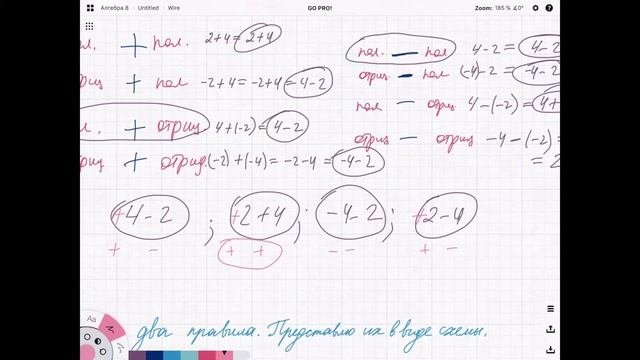 Алгебра 8 Untitled Wire GO PRO! Zoom: 185 % ∠0°
+ пол. 2+4=2+4
пол. — пол 4-2=4-2
+ пол -2+4=-2+4=4-2
отриц. — пол (-4)-2=-4-2
+ отриц 4+(-2)=4-2
пол — отриц 4-(-2)=4+
+ отриц (-2)+(-4)=-2-4=-4-2
отриц — отриц -4-(-2)=
= 2
+4-2 ; +2+4 ; -4-2 ; +2-4
+ - + + - - + -
два правила. Представлю их в виде схемы.
Aa